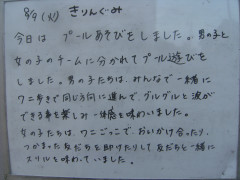 8/9 (火) きりんぐみ
今日は プールあそびをしました。男の子と
女の子のチームに分かれてプール遊びを
しました。男の子たちは、みんなで一緒に
ワニ歩きで同じ方向に進んで、グルグルと波が
できる事を楽しみ 一体感を味わいました。
女の子たちは、ワニごっこで、おいかけ合ったり、
つかまった友だちを助けたりして友だちと一緒に
スリルを味わっていました。